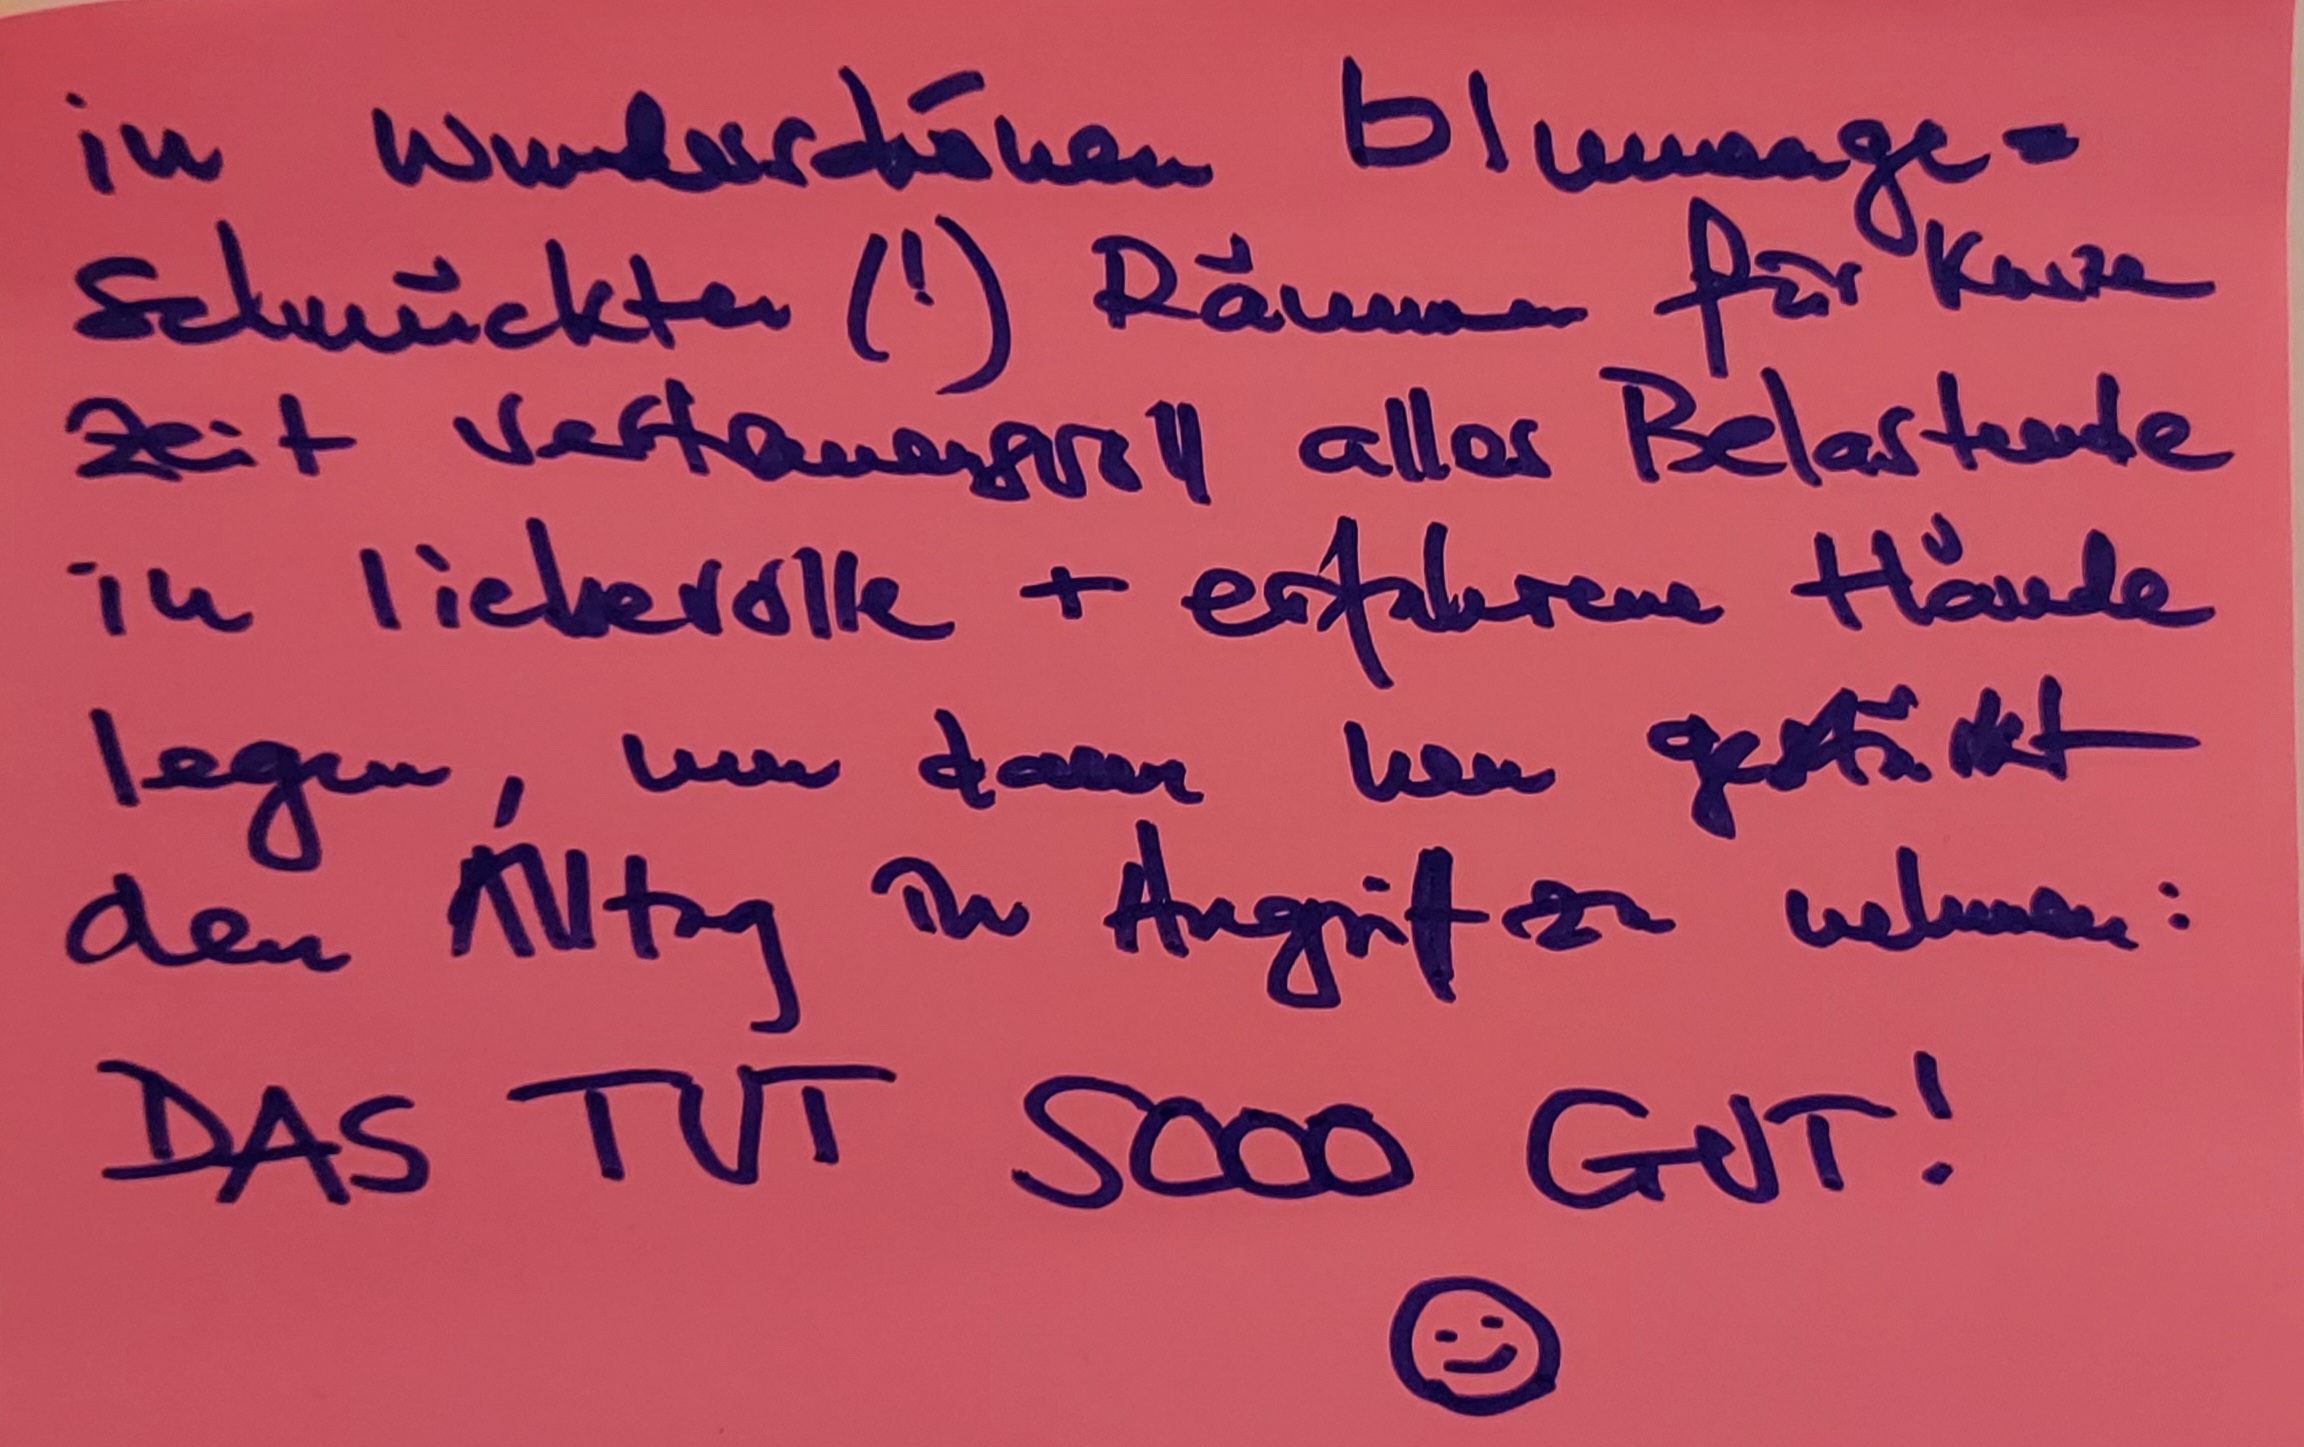 in wunderschönen blumenge-
schmückten (!) Räumen für kurze
Zeit vertrauensvoll alles Belastende
in liebevolle + erfahrene Hände
legen, um dann neu gestärkt
den Alltag in Angriff zu nehmen:
DAS TUT SOOO GUT!